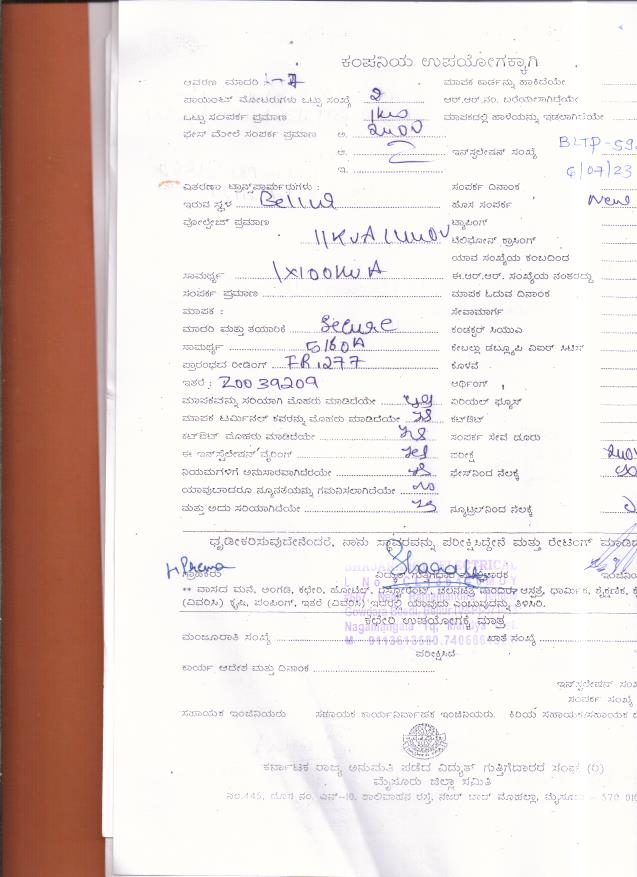 ಕಂಪನಿಯ ಉಪಯೋಗಕ್ಕಾಗಿ
ಆವರಣ ಮಾದರಿ :- ಮಾಪಕ ಕಾರ್ಡನ್ನು ಹಾಕಿದೆಯೇ
ಪಾಯಿಂಟ್ ಮೋಟಾರುಗಳು ಒಟ್ಟು ಸಂಖ್ಯೆ 2 ಆರ್.ಆರ್.ನಂ. ಬರೆಯಲಾಗಿದೆಯೇ
ಒಟ್ಟು ಸಂಪರ್ಕ ಪ್ರಮಾಣ 1kw ಮಾಪಕದಲ್ಲಿ ಹಾಳೆಯನ್ನು ಇಡಲಾಗಿದೆಯೇ
ಫೇಸ್ ಮೇಲೆ ಸಂಪರ್ಕ ಪ್ರಮಾಣ ಅ. 240V
ಆ. ಇನ್ಸ್ಟಲೇಷನ್ ಸಂಖ್ಯೆ BLTP-59
ಇ. 6/07/23
ವಿತರಣಾ ಟ್ರಾನ್ಸ್‌ಫಾರ್ಮರುಗಳು : ಸಂಪರ್ಕ ದಿನಾಂಕ
ಇರುವ ಸ್ಥಳ Bellur ಹೊಸ ಸಂಪರ್ಕ New
ವೋಲ್ಟೇಜ್ ಪ್ರಮಾಣ ಟ್ಯಾಪಿಂಗ್
11KVA / 440V ಟೆಲಿಫೋನ್ ಕ್ರಾಸಿಂಗ್
ಯಾವ ಸಂಖ್ಯೆಯ ಕಂಬದಿಂದ
ಸಾಮರ್ಥ್ಯ 1X100KVA ಈ.ಆರ್.ಆರ್. ಸಂಖ್ಯೆಯ ನಂತರದ್ದು
ಸಂಪರ್ಕ ಪ್ರಮಾಣ ಮಾಪಕ ಓದುವ ದಿನಾಂಕ
ಮಾಪಕ : ಸೇವಾಮಾರ್ಗ
ಮಾದರಿ ಮತ್ತು ತಯಾರಿಕೆ Secure ಕಂಡಕ್ಟರ್ ಸಿಯುಎ
ಸಾಮರ್ಥ್ಯ 5/60A ಕೇಬಲ್ಲು ಡಬ್ಲ್ಯೂಪಿ ವಿಐಆರ್
ಪ್ರಾರಂಭದ ರೀಡಿಂಗ್ FR 1277 ಕೊಳವೆ
ಇತರೆ : Z0039209 ಅರ್ಥಿಂಗ್
ಮಾಪಕವನ್ನು ಸರಿಯಾಗಿ ಮೊಹರು ಮಾಡಿದೆಯೇ yes ಏರಿಯಲ್ ಫ್ಯೂಸ್
ಮಾಪಕ ಟರ್ಮಿನಲ್ ಕವರನ್ನು ಮೊಹರು ಮಾಡಿದೆಯೇ yes ಕಟ್‌ಔಟ್
ಕಟ್‌ಔಟ್ ಮೊಹರು ಮಾಡಿದೆಯೇ yes ಸಂಪರ್ಕ ಸೇವೆ ದೂರು
ಈ ಇನ್‌ಸ್ಟಲೇಷನ್ ವೈರಿಂಗ್ yes ಪರೀಕ್ಷೆ 240V
ನಿಯಮಗಳಿಗೆ ಅನುಸಾರವಾಗಿದೆಯೇ yes ಫೇಸ್‌ನಿಂದ ನೆಲಕ್ಕೆ
ಯಾವುದಾದರೂ ನ್ಯೂನತೆಯನ್ನು ಗಮನಿಸಲಾಗಿದೆಯೇ no
ಮತ್ತು ಅದು ಸರಿಯಾಗಿದೆಯೇ yes ನ್ಯೂಟ್ರಲ್‌ನಿಂದ ನೆಲಕ್ಕೆ
ಧೃಡೀಕರಿಸುವುದೇನೆಂದರೆ, ನಾನು ಸ್ಥಾವರವನ್ನು ಪರೀಕ್ಷಿಸಿದ್ದೇನೆ ಮತ್ತು ರೇಟಿಂಗ್
Prema
ಗ್ರಾಹಕರು ವಿದ್ಯುತ್ ಗುತ್ತಿಗೆದಾರ
** ವಾಸದ ಮನೆ, ಅಂಗಡಿ, ಕಛೇರಿ, ಹೋಟೆಲ್, ರೆಸ್ಟೋರೆಂಟ್, ಚಲನಚಿತ್ರ ಮಂದಿರ, ಆಸ್ಪತ್ರೆ, ಧಾರ್ಮಿಕ, ಶೈಕ್ಷಣಿಕ,
(ವಿವರಿಸಿ) ಕೃಷಿ, ಪಂಪಿಂಗ್, ಇತರೆ (ವಿವರಿಸಿ) ಇವರಲ್ಲಿ ಯಾವುದು ಎಂಬುವುದನ್ನು ತಿಳಿಸಿರಿ.
ಕಛೇರಿ ಉಪಯೋಗಕ್ಕೆ ಮಾತ್ರ
Nagamangala Tq, Mandya
ಮಂಜೂರಾತಿ ಸಂಖ್ಯೆ ಖಾತೆ ಸಂಖ್ಯೆ
ಪರೀಕ್ಷಿಸಿದೆ
ಕಾರ್ಯ ಆದೇಶ ಮತ್ತು ದಿನಾಂಕ
ಸಂಪರ್ಕ ಸಂಖ್ಯೆ
ಸಹಾಯಕ ಇಂಜಿನಿಯರು ಸಹಾಯಕ ಕಾರ್ಯನಿರ್ವಾಹಕ ಇಂಜಿನಿಯರು. ಕಿರಿಯ ಸಹಾಯಕ/ಸಹಾಯಕ
ಕರ್ನಾಟಕ ರಾಜ್ಯ ಅನುಮತಿ ಪಡೆದ ವಿದ್ಯುತ್ ಗುತ್ತಿಗೆದಾರರ ಸಂಘ (ರಿ)
ಮೈಸೂರು ಜಿಲ್ಲಾ ಸಮಿತಿ
ನಂ.445, ಎನ್-10, ಶಾಲಿವಾಹನ ರಸ್ತೆ, ನಜರ್ ಬಾದ್ ಮೊಹಲ್ಲಾ, ಮೈಸೂರು - 570 010